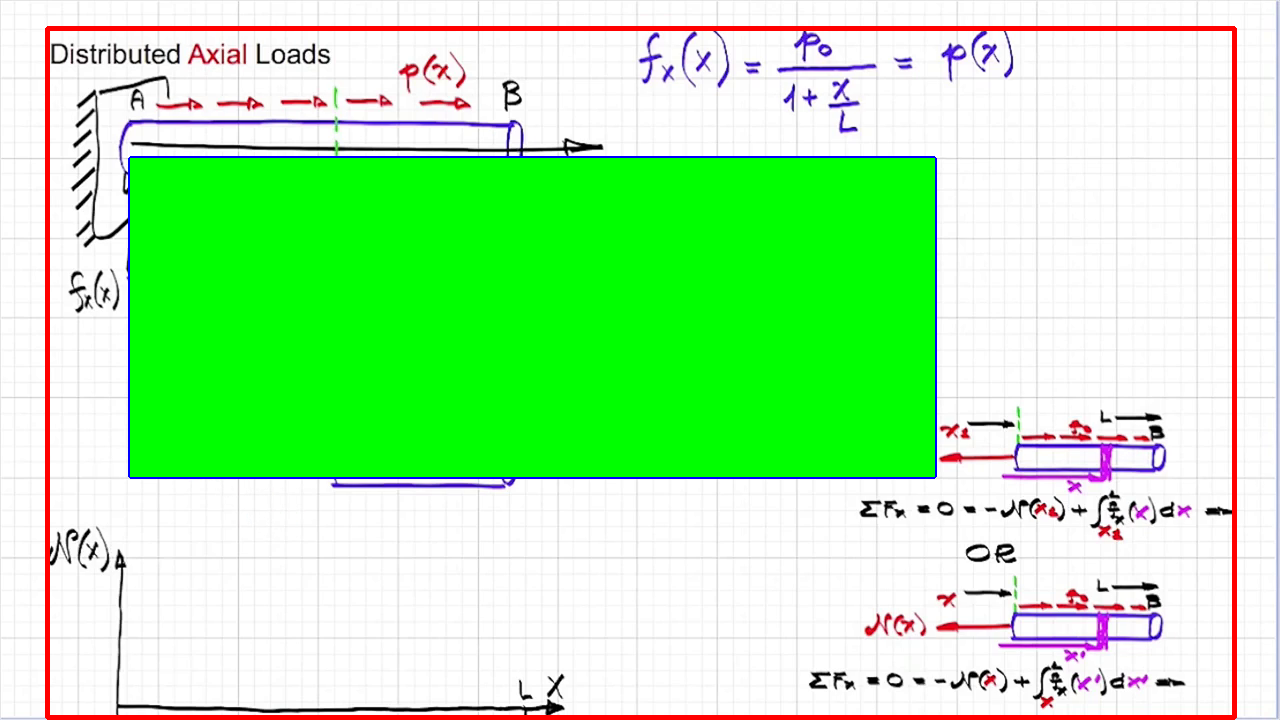 Distributed Axial Loads
f_x(x) = p_0 / (1 + x/L) = p(x)
p(x)
A
B
f_x(x)
L
x_1
B
x
ΣF_x = 0 = -N(x_1) + ∫_{x_1}^{L} f_x(x)dx
OR
L
x
B
N(x)
x'
ΣF_x = 0 = -N(x) + ∫_{x}^{L} f_x(x')dx'
N(x)
L X